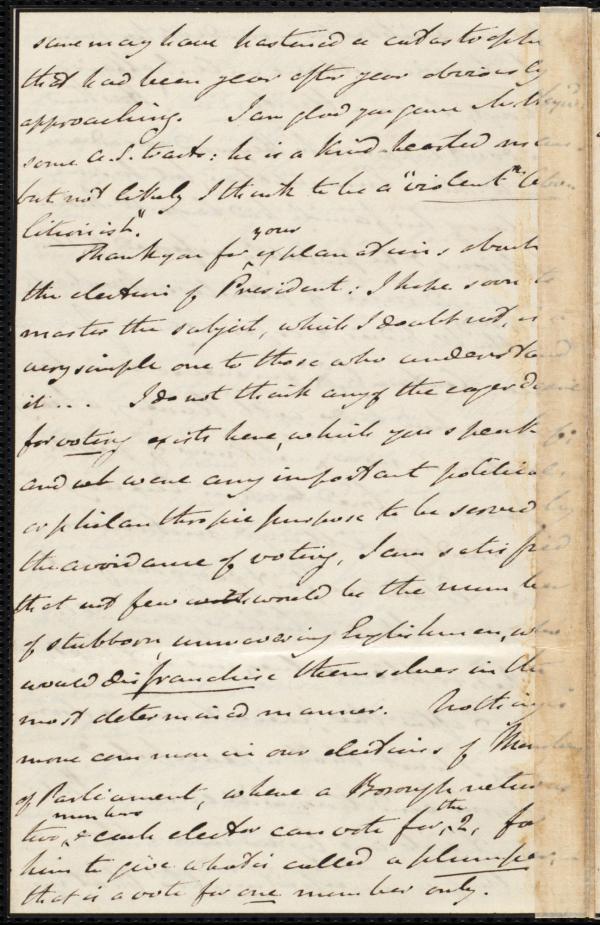 same may have hastened a catastrophe
that had been year after year obviously
approaching. I am glad you gave Mr.
some A.S. tracts: he is a kind-hearted man
but not likely I think to be a "violent Abo
litionist".
Thank you for your explanations about
the election of President: I hope soon to
master the subject, which I doubt not, is a
very simple one to those who understand
it... I do not think any of the eager desire
for voting exists here, which you speak of
and were any important political
or philanthropic purpose to be served by
the avoidance of voting, I am satisfied
that not few would be the number
of stubborn, unwavering Englishmen, who
would disfranchise themselves in the
most determined manner. Nothing is
more common in our elections of Members
of Parliament, where a Borough returns
two members, & each elector can vote for the 2, for
him to give what is called a plumper,
that is a vote for one member only.